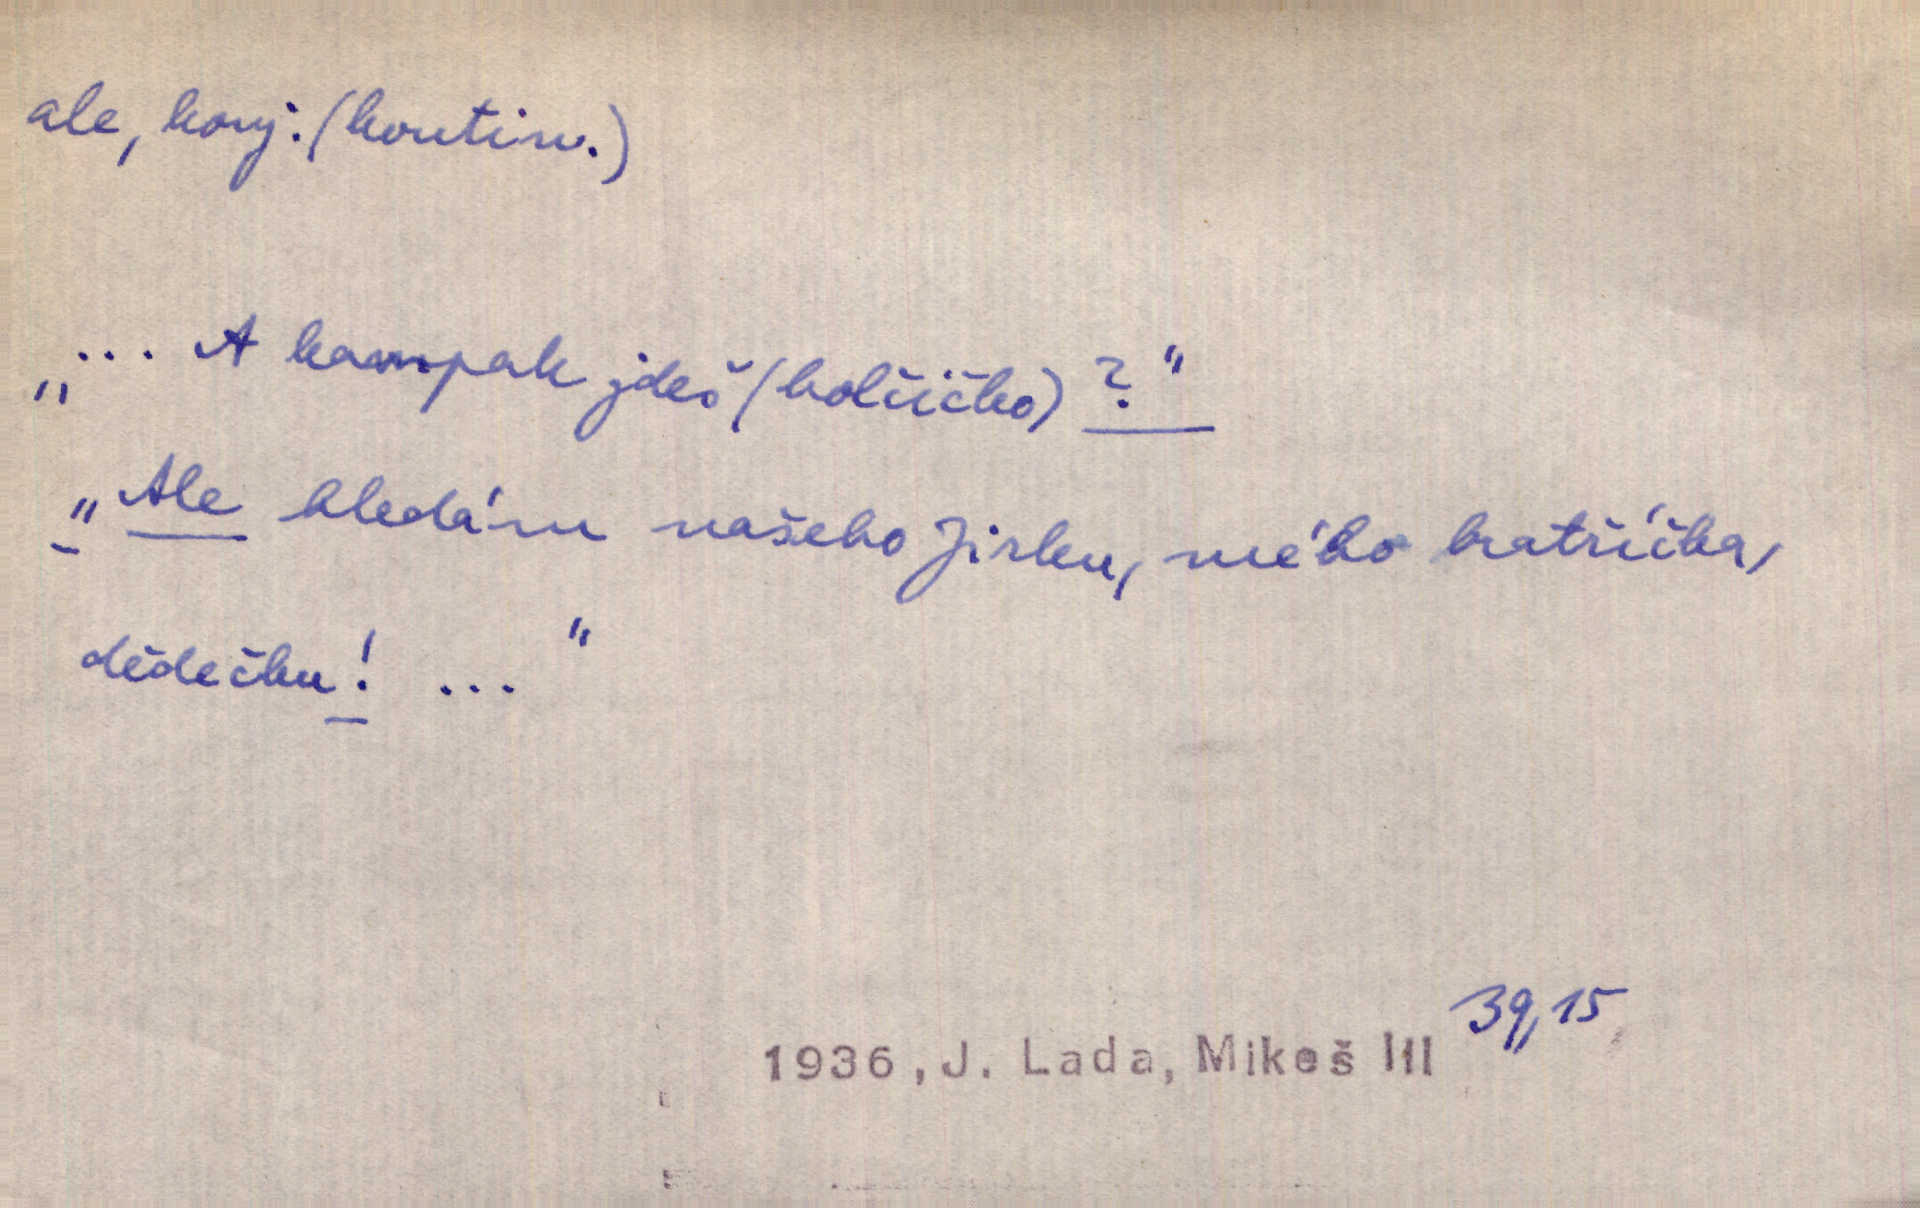 ale, konj. (kontin.)
„... A kampak jdeš (holčičko)?"
"Ale hledám našeho Jirku, mého bratříčka,
dědečku! ..."
39,15
1936, J. Lada, Mikeš III